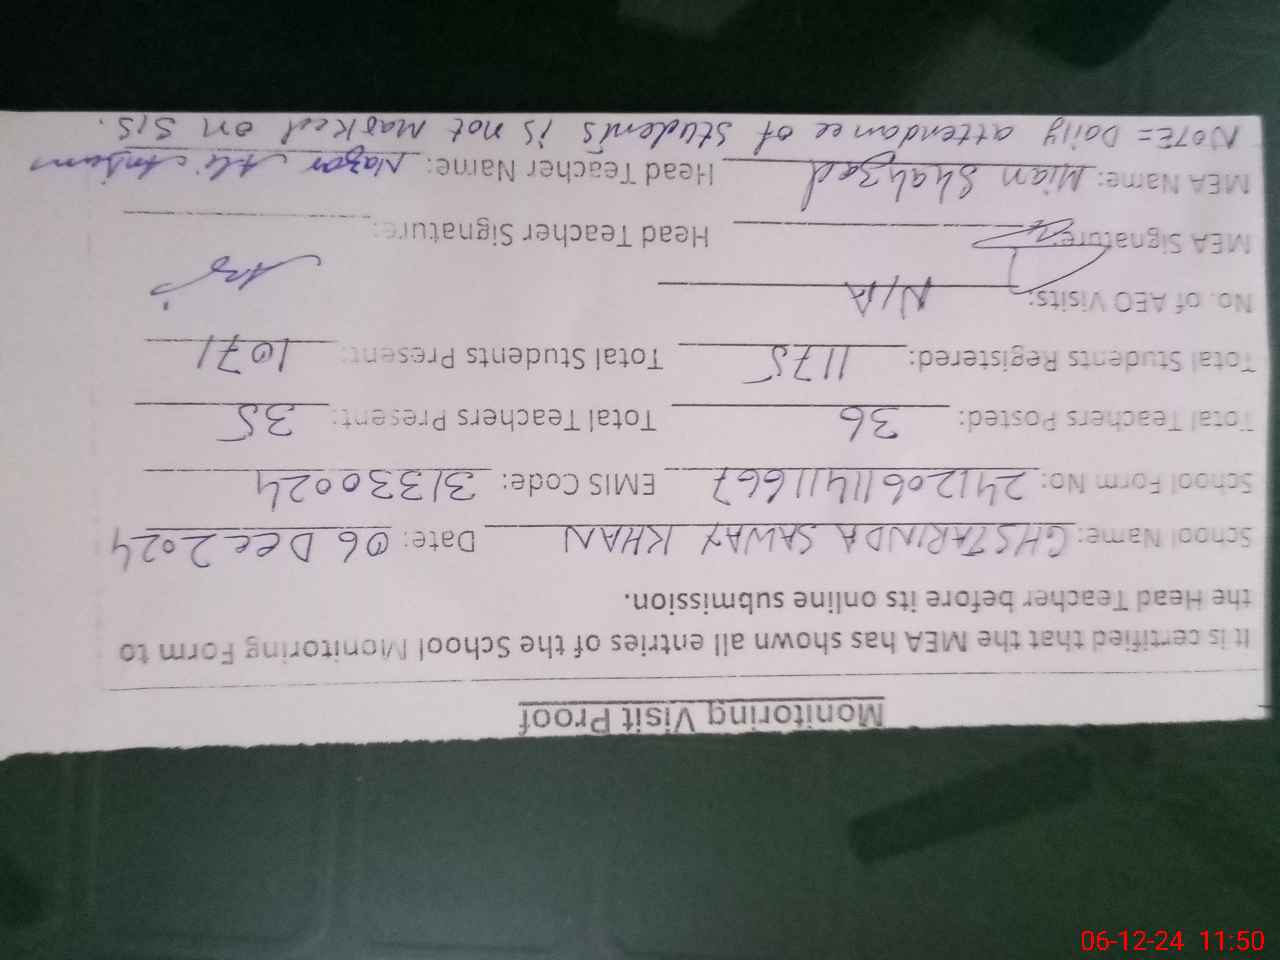 Monitoring Visit Proof
It is certified that the MEA has shown all entries of the School Monitoring Form to
the Head Teacher before its online submission.
School Name: GHS TARINDA SAWAY KHAN Date: 06 DEC 2024
School Form No: 241206114111667 EMIS Code: 31330024
Total Teachers Posted: 36 Total Teachers Present: 35
Total Students Registered: 1175 Total Students Present: 1071
No. of AEO Visits: N/A
MEA Signature: Head Teacher Signature:
MEA Name: Mian Shahzad Head Teacher Name: Nazar Ali Anjum
NOTE= Daily attendance of students is not marked on SIS.
06-12-24 11:50